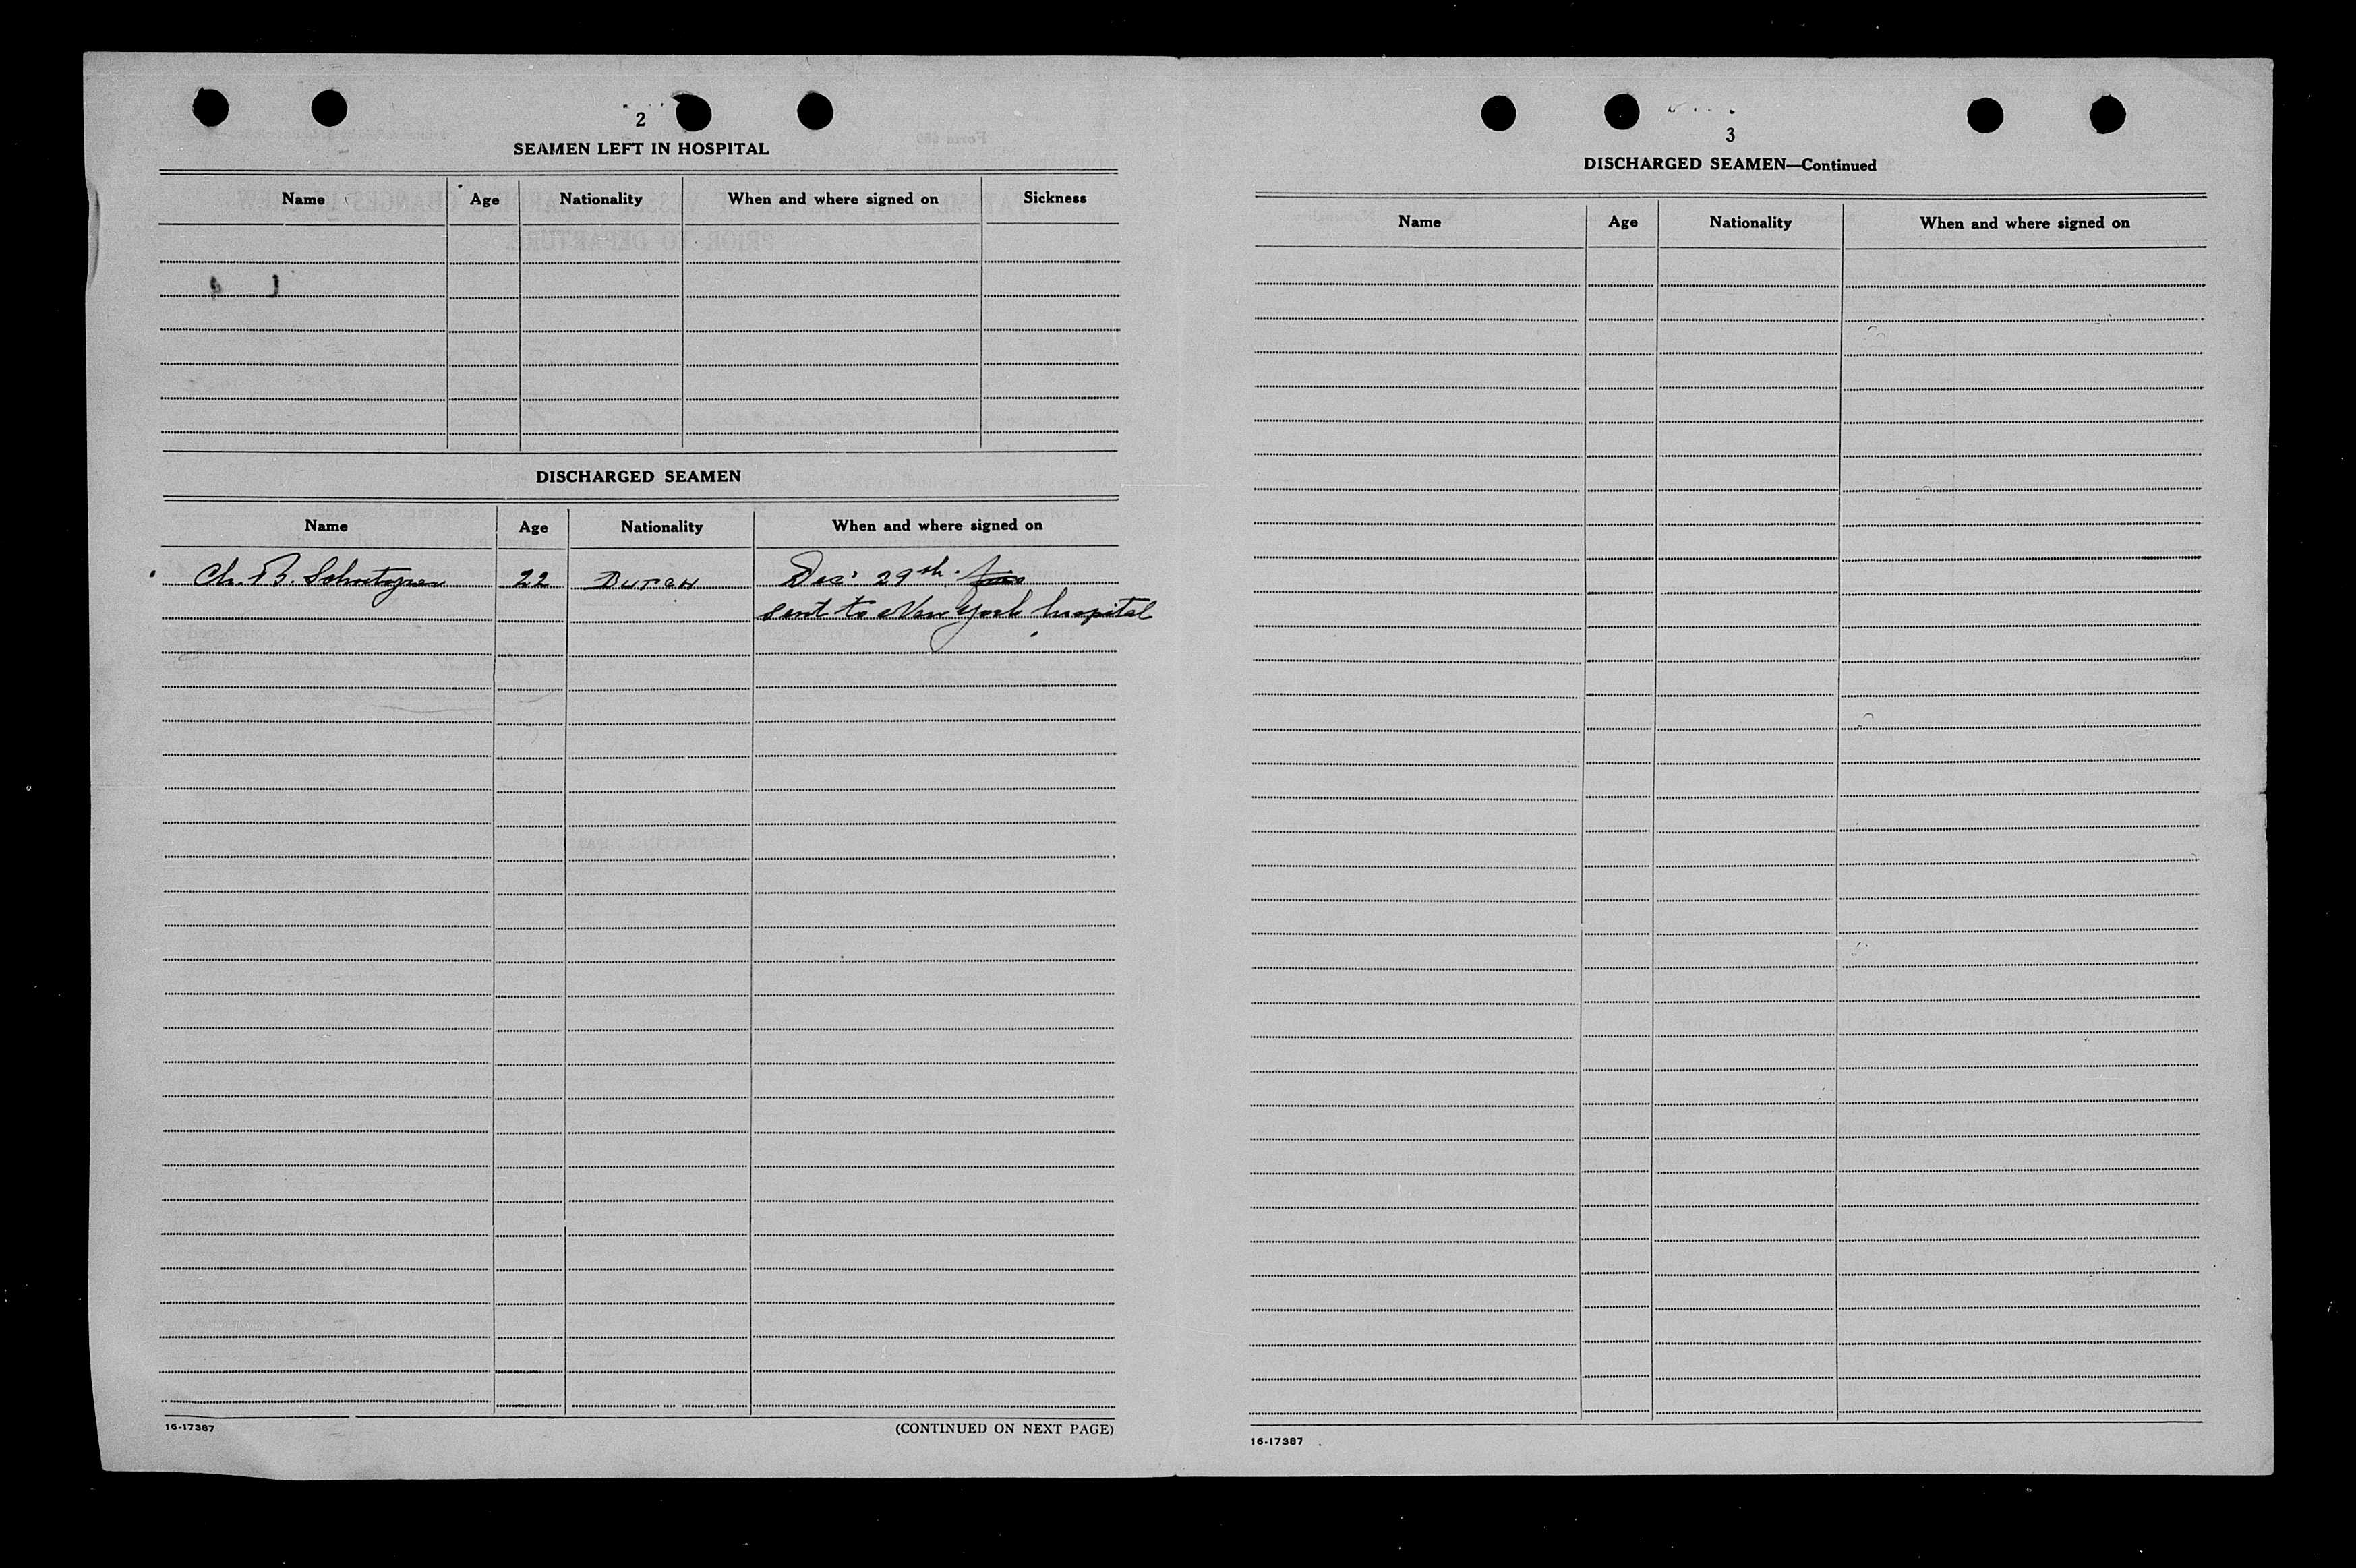 2
SEAMEN LEFT IN HOSPITAL
Name Age Nationality When and where signed on Sickness
DISCHARGED SEAMEN
Name Age Nationality When and where signed on
Ch. B. 22 DUTCH Dec' 29th.
sent to New York hospital
16-17387 (CONTINUED ON NEXT PAGE)
3
DISCHARGED SEAMEN—Continued
Name Age Nationality When and where signed on
16-17387